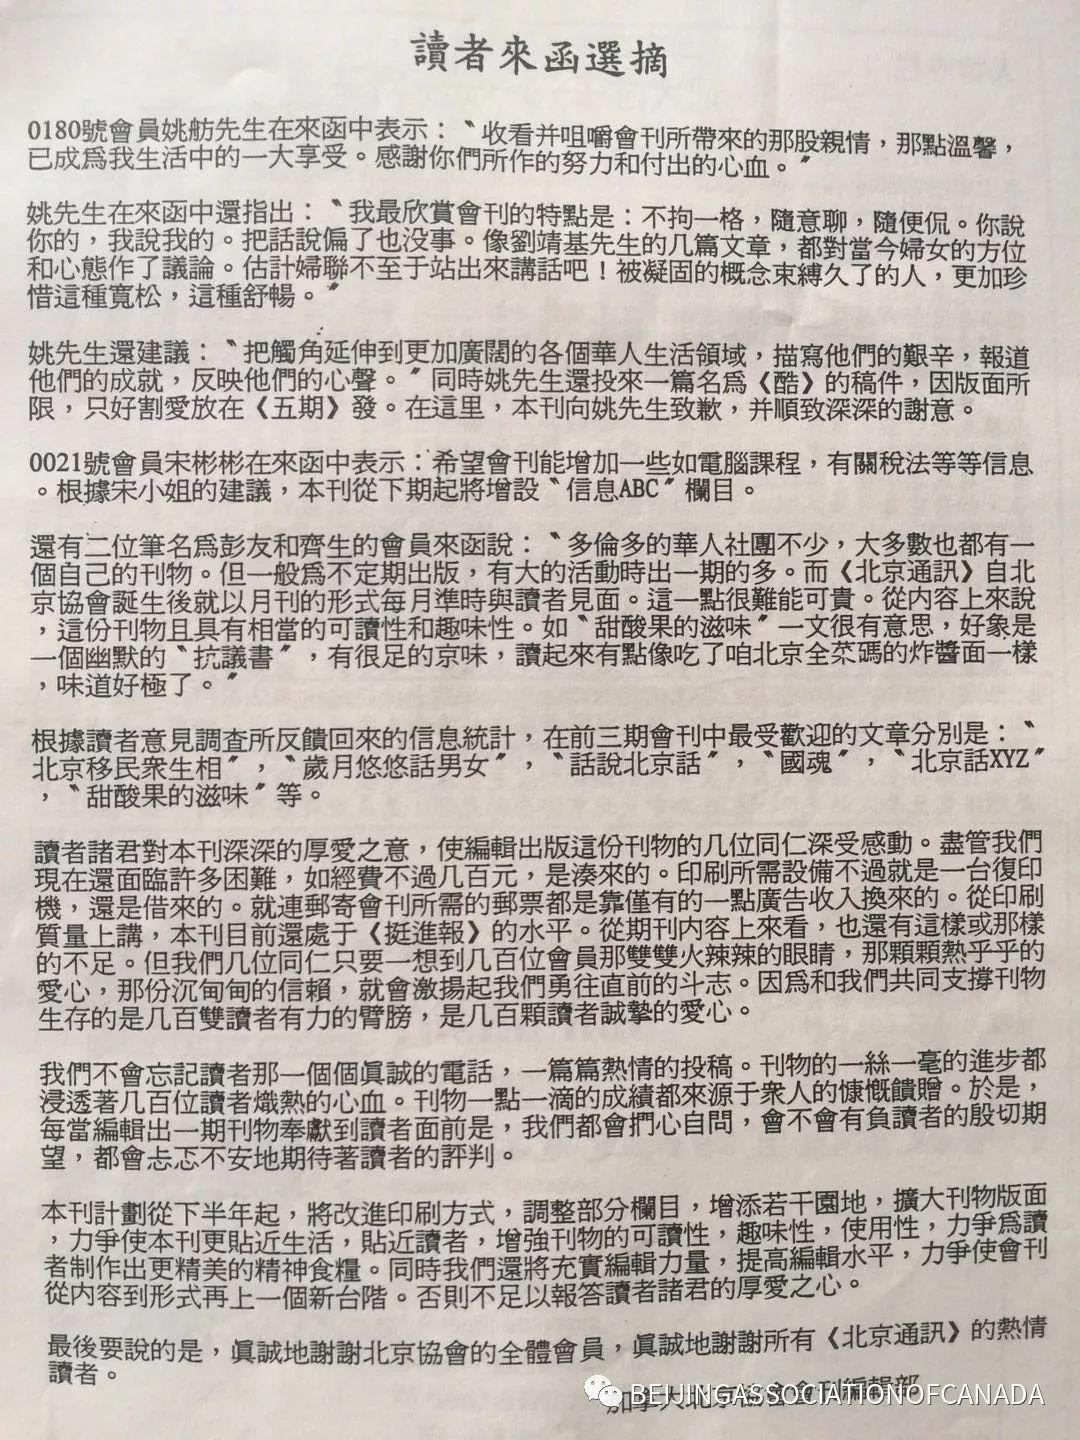 讀者來函選摘
0180號會員姚舫先生在來函中表示：〝收看并咀嚼會刊所帶來的那股親情，那點溫馨，
已成爲我生活中的一大享受。感謝你們所作的努力和付出的心血。〞
姚先生在來函中還指出：〝我最欣賞會刊的特點是：不拘一格，隨意聊，隨便侃。你說
你的，我說我的。把話說偏了也没事。像劉靖基先生的几篇文章，都對當今婦女的方位
和心態作了議論。估計婦聯不至于站出來講話吧！被凝固的概念束縛久了的人，更加珍
惜這種寬松，這種舒暢。〞
姚先生還建議：〝把觸角延伸到更加廣闊的各個華人生活領域，描寫他們的艱辛，報道
他們的成就，反映他們的心聲。〞同時姚先生還投來一篇名爲《酷》的稿件，因版面所
限，只好割愛放在《五期》發。在這里，本刊向姚先生致歉，并順致深深的謝意。
0021號會員宋彬彬在來函中表示：希望會刊能增加一些如電腦課程，有關稅法等等信息
。根據宋小姐的建議，本刊從下期起將增設〝信息ABC〞欄目。
還有二位筆名爲彭友和齊生的會員來函說：〝多倫多的華人社團不少，大多數也都有一
個自己的刊物。但一般爲不定期出版，有大的活動時出一期的多。而《北京通訊》自北
京協會誕生後就以月刊的形式每月準時與讀者見面。這一點很難能可貴。從内容上來說
，這份刊物且具有相當的可讀性和趣味性。如〝甜酸果的滋味〞一文很有意思，好象是
一個幽默的〝抗議書〞，有很足的京味，讀起來有點像吃了咱北京全菜碼的炸醬面一樣
，味道好極了。〞
根據讀者意見調査所反饋回來的信息統計，在前三期會刊中最受歡迎的文章分別是：〝
北京移民衆生相〞，〝歲月悠悠話男女〞，〝話說北京話〞，〝國魂〞，〝北京話XYZ〞
，〝甜酸果的滋味〞等。
讀者諸君對本刊深深的厚愛之意，使編輯出版這份刊物的几位同仁深受感動。盡管我們
現在還面臨許多困難，如經費不過几百元，是湊來的。印刷所需設備不過就是一台復印
機，還是借來的。就連郵寄會刊所需的郵票都是靠僅有的一點廣告收入換來的。從印刷
質量上講，本刊目前還處于《挺進報》的水平。從期刊内容上來看，也還有這樣或那樣
的不足。但我們几位同仁只要一想到几百位會員那雙雙火辣辣的眼睛，那顆顆熱乎乎的
愛心，那份沉甸甸的信賴，就會激揚起我們勇往直前的斗志。因爲和我們共同支撐刊物
生存的是几百雙讀者有力的臂膀，是几百顆讀者誠摯的愛心。
我們不會忘記讀者那一個個眞誠的電話，一篇篇熱情的投稿。刊物的一絲一毫的進步都
浸透著几百位讀者熾熱的心血。刊物一點一滴的成績都來源于衆人的慷慨饋贈。於是，
每當編輯出一期刊物奉獻到讀者面前是，我們都會捫心自問，會不會有負讀者的殷切期
望，都會忐忑不安地期待著讀者的評判。
本刊計劃從下半年起，將改進印刷方式，調整部分欄目，增添若干園地，擴大刊物版面
，力爭使本刊更貼近生活，貼近讀者，增強刊物的可讀性，趣味性，使用性，力爭爲讀
者制作出更精美的精神食糧。同時我們還將充實編輯力量，提高編輯水平，力爭使會刊
從内容到形式再上一個新台階。否則不足以報答讀者諸君的厚愛之心。
最後要說的是，眞誠地謝謝北京協會的全體會員，眞誠地謝謝所有《北京通訊》的熱情
讀者。
加拿大北京協會會刊編輯部
BEIJINGASSOCIATIONOFCANADA